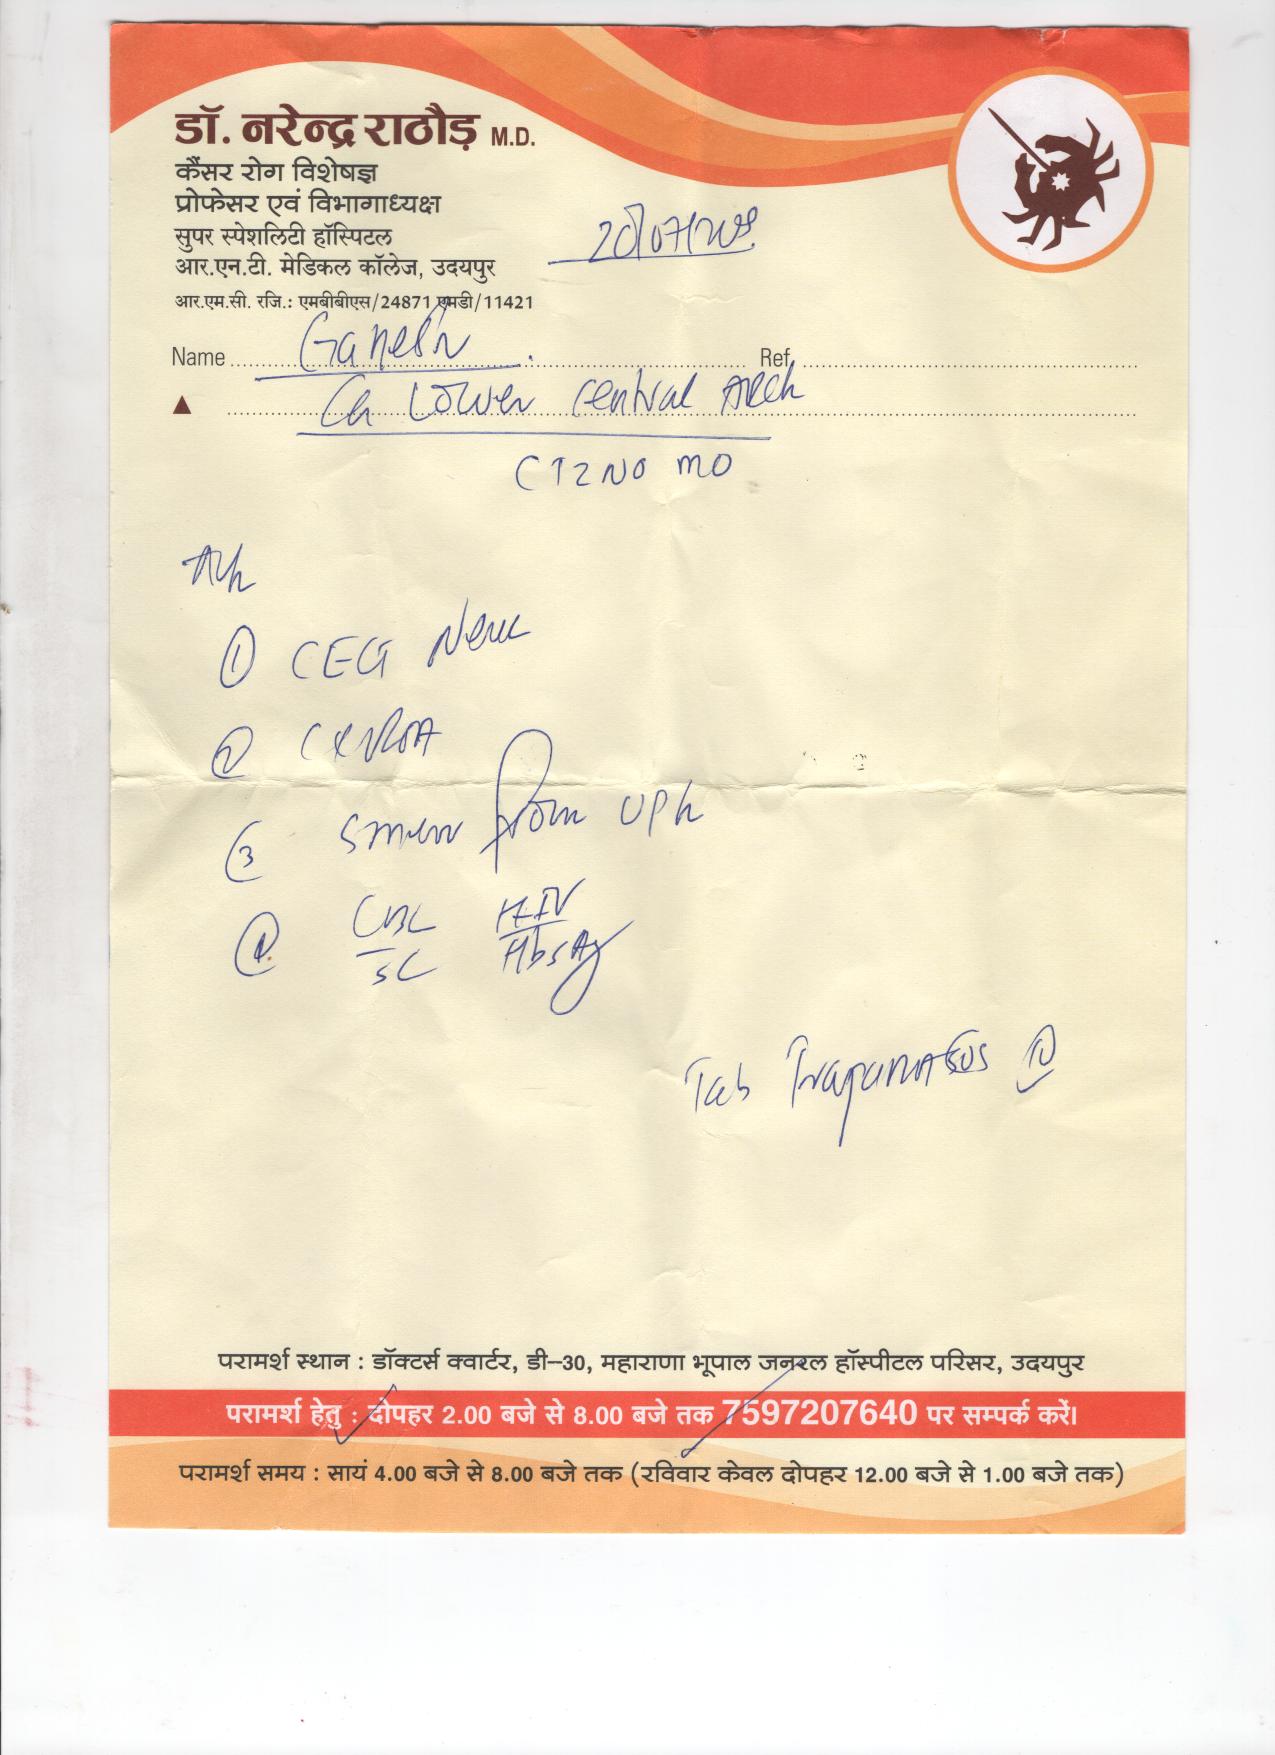 डॉ. नरेन्द्र राठौड़ M.D.
कैंसर रोग विशेषज्ञ
प्रोफेसर एवं विभागाध्यक्ष
सुपर स्पेशलिटी हॉस्पिटल
आर.एन.टी. मेडिकल कॉलेज, उदयपुर
आर.एम.सी. रजि.: एमबीबीएस/24871 एमडी/11421
Name Ganesh Ref.
Ca Lower Central Arch
CT2N0 M0
① CECT Neck
②
③ from
④ CBC HIV
SC HbsAg
Tab
परामर्श स्थान : डॉक्टर्स क्वार्टर, डी-30, महाराणा भूपाल जनरल हॉस्पीटल परिसर, उदयपुर
परामर्श हेतु : दोपहर 2.00 बजे से 8.00 बजे तक 7597207640 पर सम्पर्क करें।
परामर्श समय : सायं 4.00 बजे से 8.00 बजे तक (रविवार केवल दोपहर 12.00 बजे से 1.00 बजे तक)